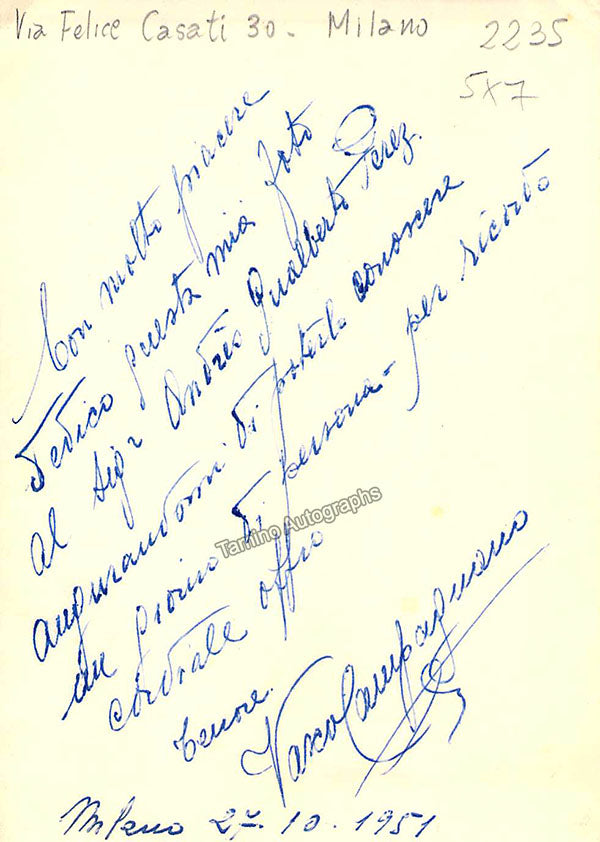 Via Felice Casati 30 - Milano
2235
5x7
Con molto piacere
dedico questa mia foto
al Sigr Andrés Gualberto Perez.
augurandomi di poterla conoscere
un giorno di persona - per ricordo
cordiale offro
Tenore.
Vasco Campagnano
Milano 27.10.1951
Tamino Autographs